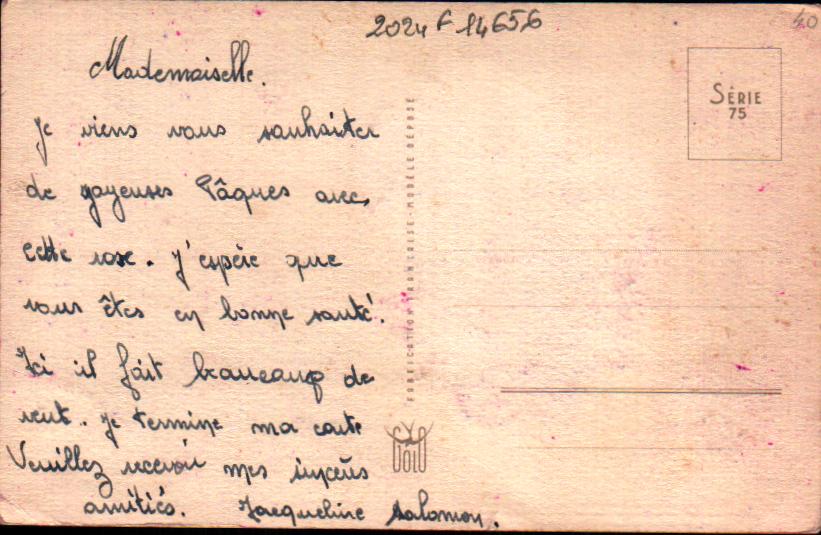 2024 F 14656
40
Mademoiselle.
Je viens vous souhaiter
de goyeuses Pâques avec
cette rose. J'espère que
vous êtes en bonne santé.
Ici il fait beaucoup de
vent. Je termine ma carte
Veuillez recevoir mes sincères
amitiés. Jacqueline Salomon.
FABRICATION FRANÇAISE-MODÈLE DÉPOSÉ
SÉRIE
75